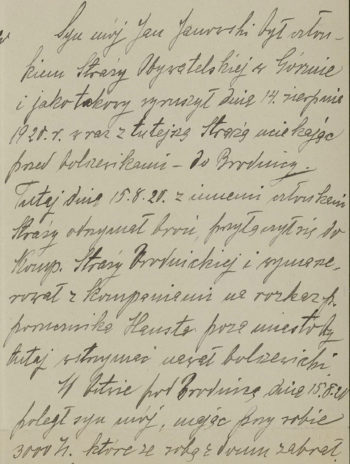 Syn mój Jan Janowski był człon-
kiem Straży Obywatelskiej w Górznie
i jako takowy wyruszył dnia 14. sierpnia
1920. r. wraz z tutejszą Strażą uciekając
przed bolszewikami - do Brodnicy.
Tutaj dnia 15.8.20. z innemi członkami
Straży otrzymał broń przyłączył się do
Komp. Straży Brodnickiej i wymasze-
rował z Kompaniami na rozkaz p.
porucznika Hausta poza miasto by
tutaj wstrzymać nawał bolszewicki.
W bitwie pod Brodnicą dnia 15.8.20
poległ syn mój, mając przy sobie
3000 M. które ze sobą z domu zabrał